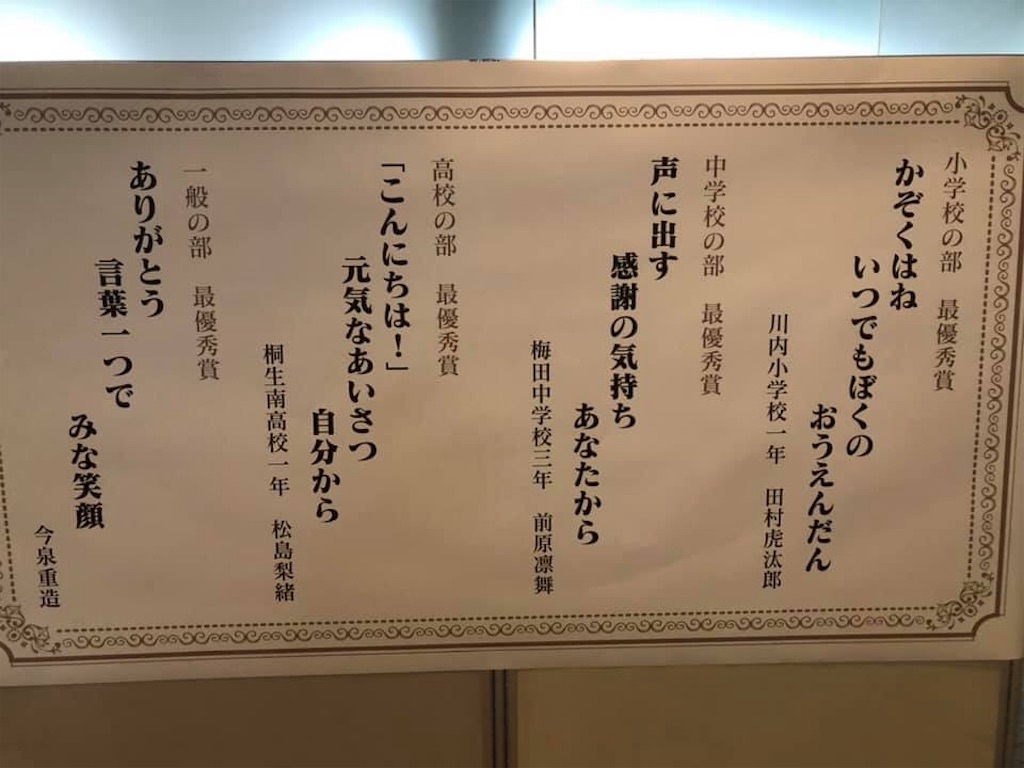 小学校の部　最優秀賞
かぞくはね
いつでもぼくの
おうえんだん
川内小学校一年　田村虎汰郎
中学校の部　最優秀賞
声に出す
感謝の気持ち
あなたから
梅田中学校三年　前原凛舞
高校の部　最優秀賞
「こんにちは！」
元気なあいさつ
自分から
桐生南高校一年　松島梨緒
一般の部　最優秀賞
ありがとう
言葉一つで
みな笑顔
今泉重造